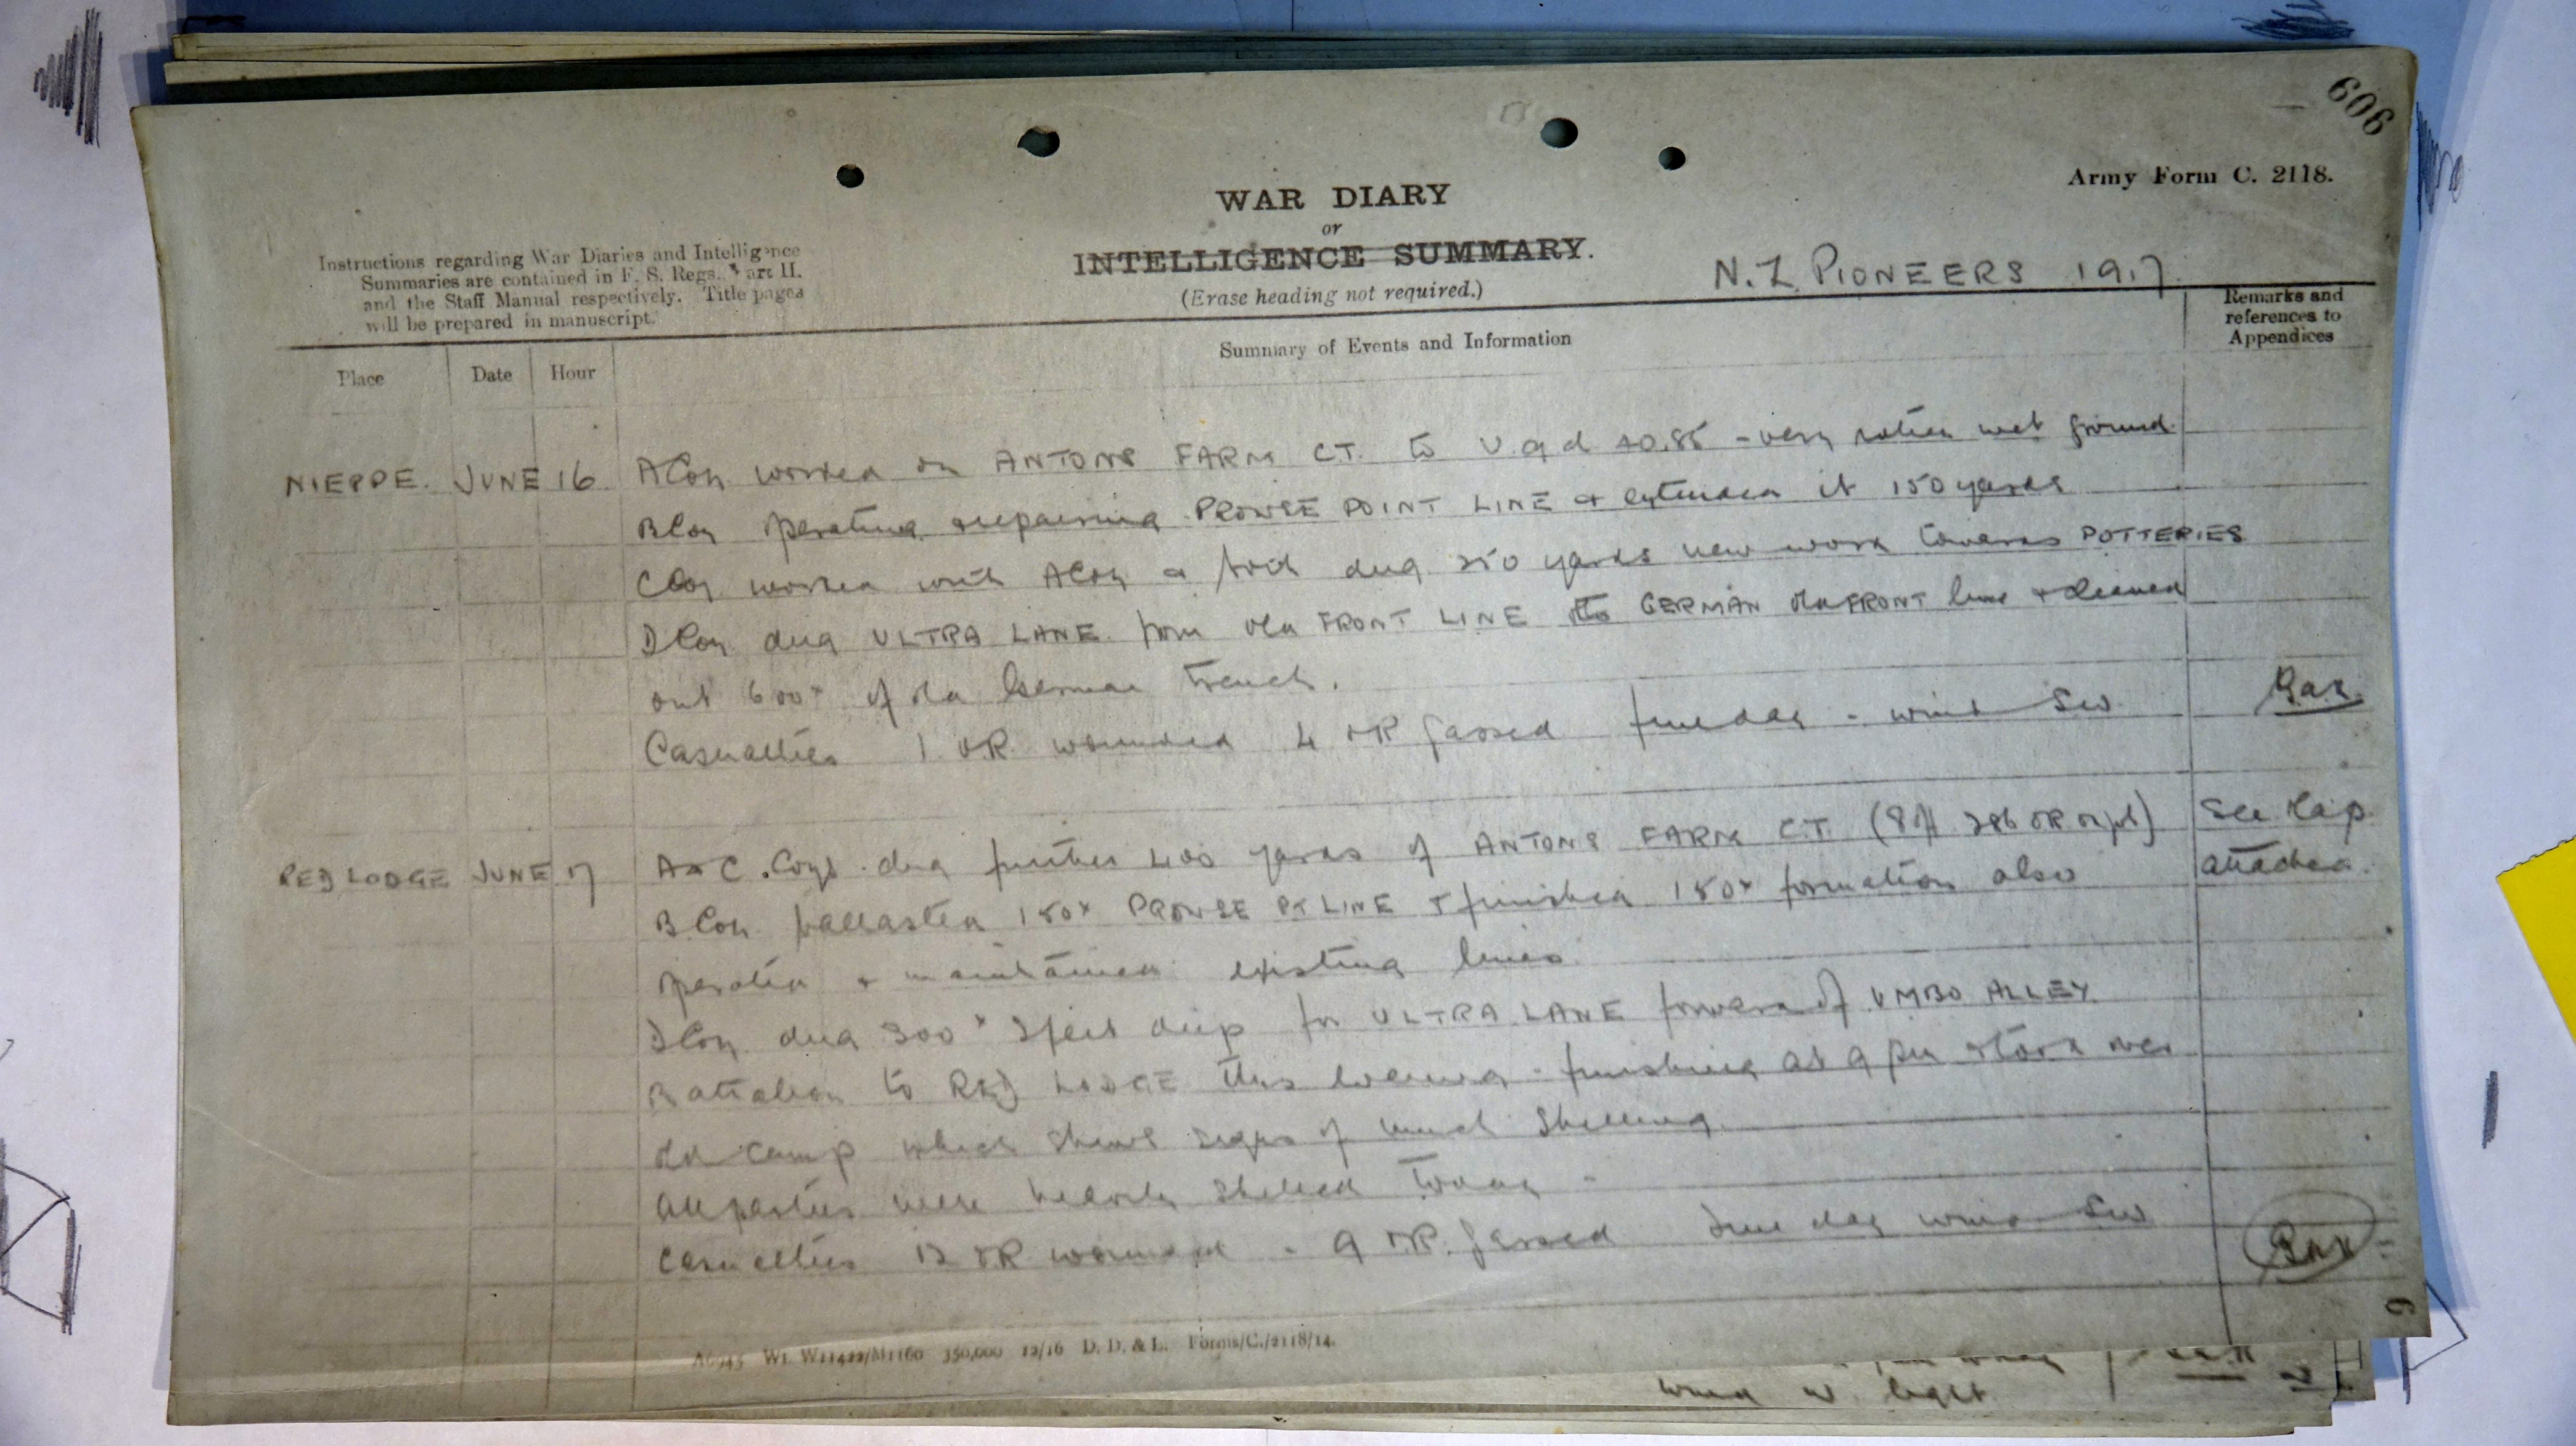 606
Army Form C. 2118.
WAR DIARY
or
INTELLIGENCE SUMMARY.
(Erase heading not required.)
N.Z. PIONEERS 1917.
Instructions regarding War Diaries and Intelligence
Summaries are contained in F. S. Regs., Part II.
and the Staff Manual respectively. Title pages
will be prepared in manuscript.
Place Date Hour Summary of Events and Information Remarks and references to Appendices
NIEPPE. JUNE 16 A Coy worked on ANTONS FARM C.T. to U.9.d 40.85 - very rotten wet ground
B Coy operating & repairing PROWSE POINT LINE & extended it 150 yards
C Coy worked with A Coy & both dug 250 yards new work towards POTTERIES
D Coy dug ULTRA LANE from old FRONT LINE to GERMAN old FRONT line & cleaned
out 600x of old German trench.
Casualties 1 OR wounded 4 OR gassed fine day - wind SW
RED LODGE JUNE 17 A & C. Coys. dug further 400 yards of ANTONS FARM C.T. (8 ff 286 OR) See Map
attached.
B Coy ballasted 180x PROWSE PT LINE & finished 180x formation also
operated & maintained existing lines
D Coy dug 300x 3 feet deep for ULTRA LANE forward of UMBO ALLEY
Battalion to RED LODGE this evening - finishing at 9 pm & took over
old camp which shews signs of much shelling.
All parties were heavily shelled today -
Casualties 12 OR wounded - 9 OR. gassed fine day wind SW
6
A6945 Wt. W11422/M1160 350,000 12/16 D. D. & L. Forms/C./2118/14.
wind W light